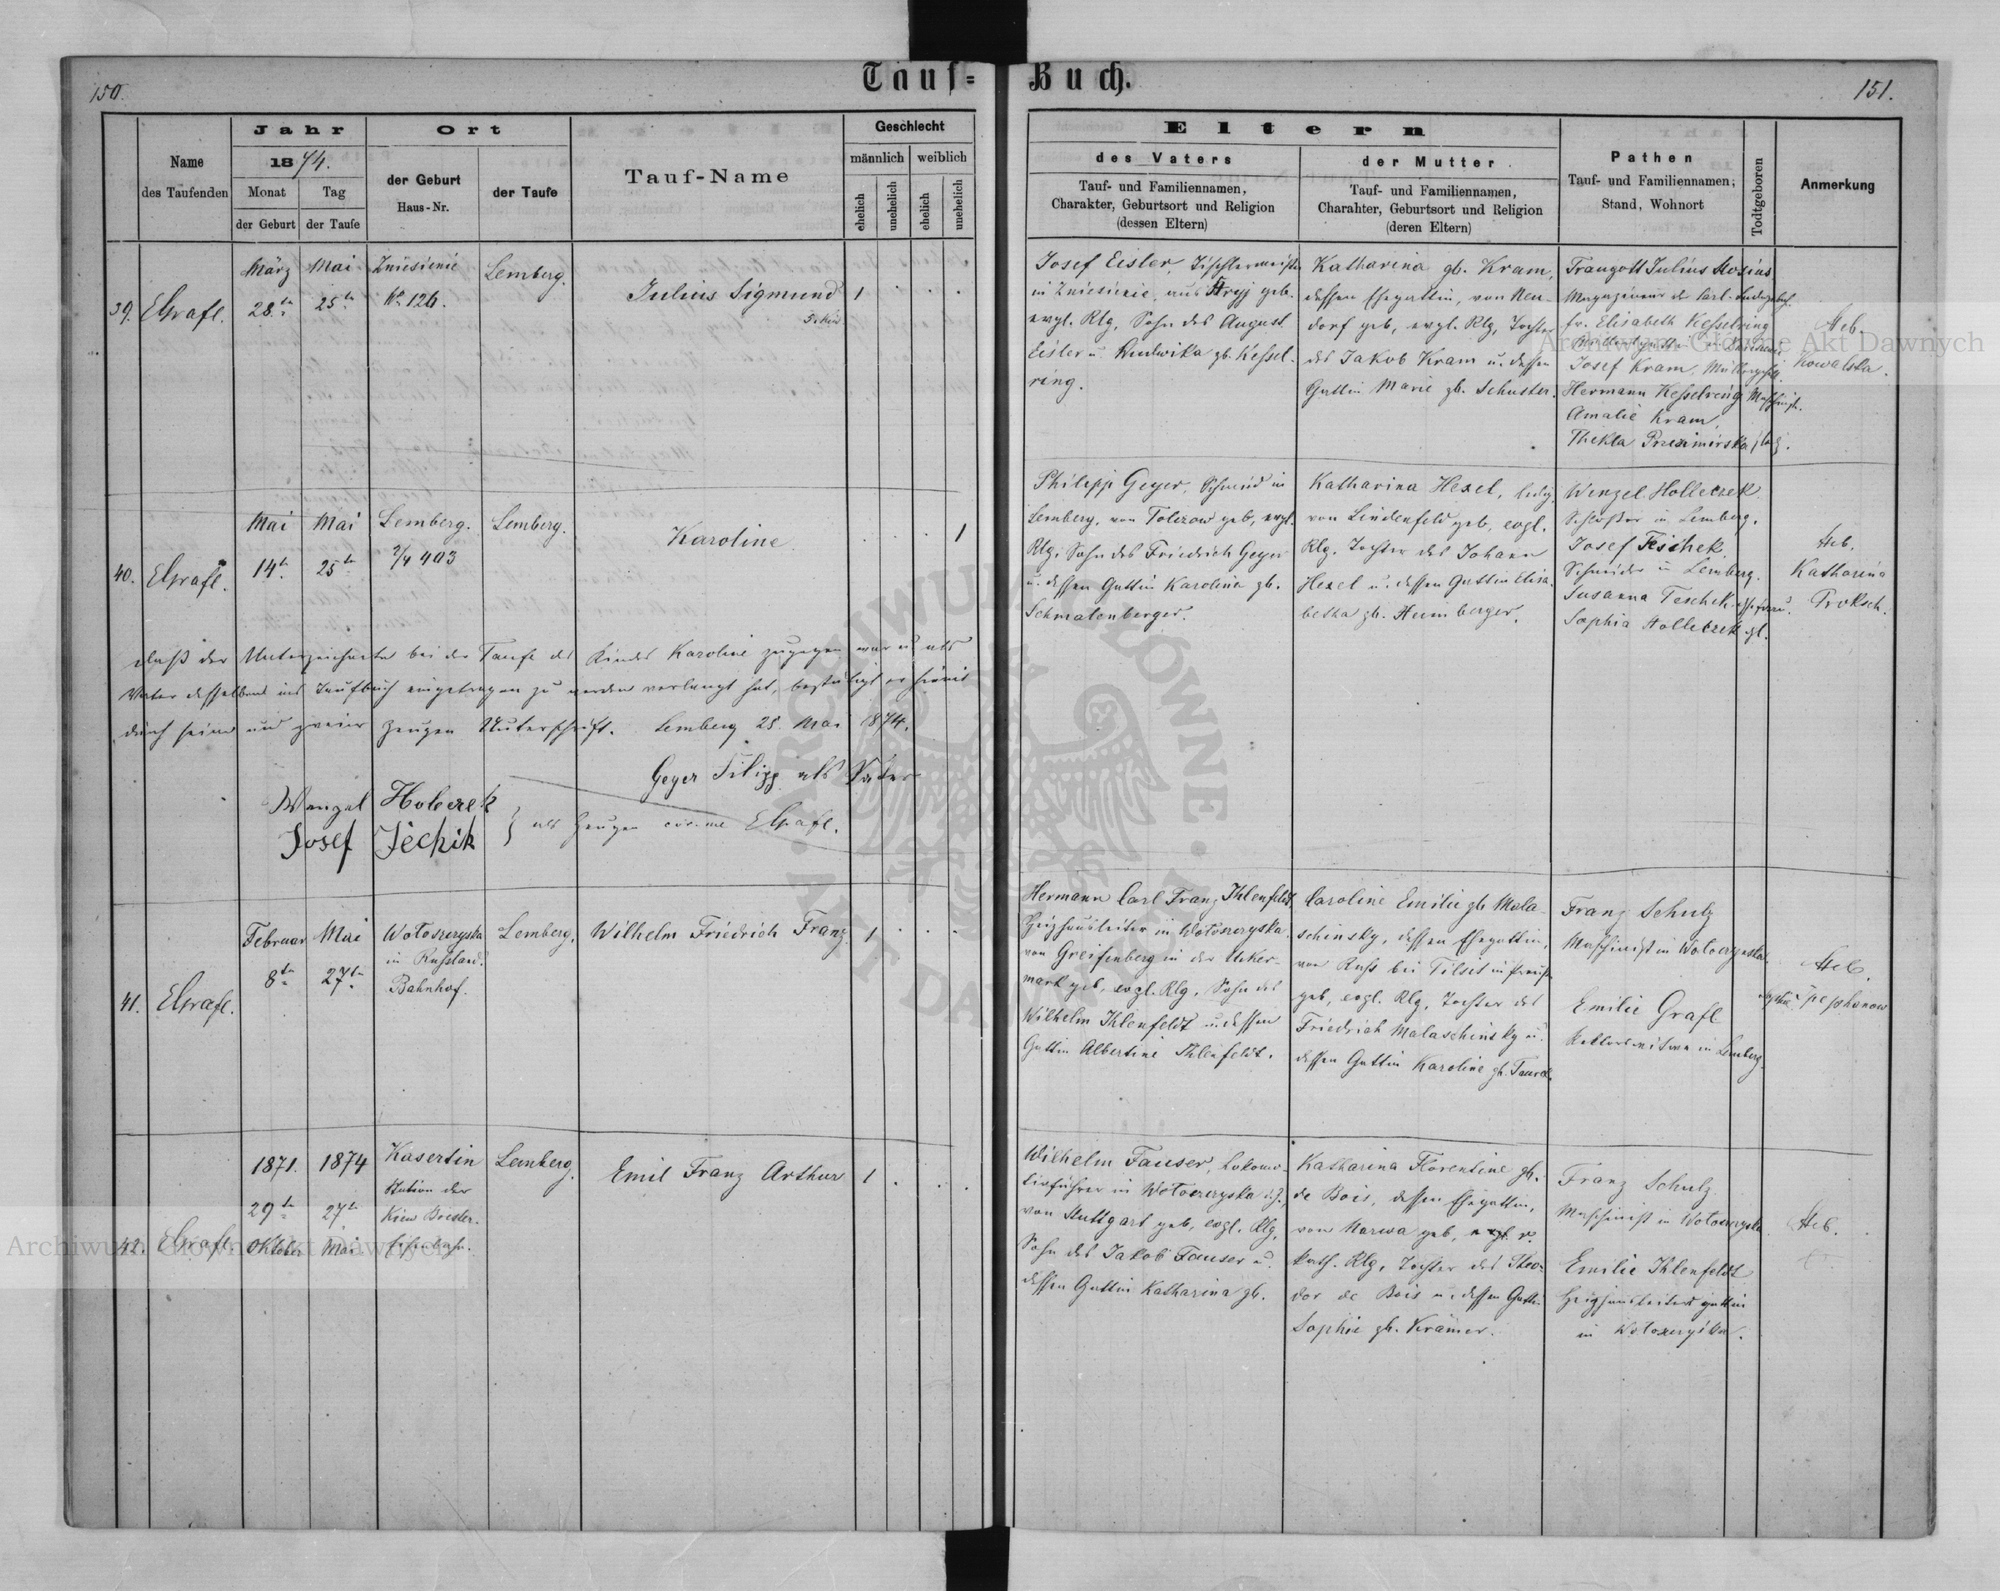 150.
Tauf-Buch.
151.
Name
des Taufenden
Jahr
1874.
Monat
der Geburt
Tag
der Taufe
Ort
der Geburt
Haus-Nr.
der Taufe
Tauf-Name
Geschlecht
männlich
weiblich
ehelich
unehelich
ehelich
unehelich
Eltern
des Vaters
Tauf- und Familiennamen,
Charakter, Geburtsort und Religion
(dessen Eltern)
der Mutter
Tauf- und Familiennamen,
Charahter, Geburtsort und Religion
(deren Eltern)
Pathen
Tauf- und Familiennamen,
Stand, Wohnort
Todtgeboren
Anmerkung
39.
EGrafl.
März
28te
Mai
25te
Zniesienie
No 126.
Lemberg.
Julius Sigmund
1
Josef Eisler, Tischlermeister
in Zniesienie, aus Stryj geb.
evgl. Rlg, Sohn des August
Eisler u. Ludwika gb. Kessel-
ring.
Katharina gb. Kram,
dessen Ehegattin, von Neu-
dorf geb, evgl. Rlg, Tochter
des Jakob Kram u. dessen
Gattin Marie gb. Schuster.
Traugott Julius Hosius
fr. Elisabeth Kesselring
Josef Kram,
Hermann Kesselring
Amalie Kram,
Thekla
Heb.
Kowalska.
40.
EGrafl.
Mai
14te
Mai
25te
Lemberg.
2/4 403
Lemberg.
Karoline
1
Philipp Geyer, Schmid in
Lemberg, von geb, evgl.
Rlg, Sohn des Friedrich Geyer
u. dessen Gattin Karolina gb.
Schmalenberger.
Katharina Hexel, ledig,
von Lindenfeld geb, evgl.
Rlg, Tochter des Johann
Hexel u. dessen Gattin Elisa-
betha gb. Heimberger.
Wenzel Holleczek
Schlosser in Lemberg,
Josef Teschek
Schneider in Lemberg.
Susanna Teschek
Sophia Holleczek
Heb.
Katharina
Proksch.
daß der Unterzeichnete bei der Taufe des Kindes Karoline zugegen war u. als
Vater desselben ins Taufbuch eingetragen zu werden verlangt hat, bestätigt er hiemit
durch seine und zweier Zeugen Unterschrift. Lemberg 25. Mai 1874.
Geyer Filipp als Vater
Wenzel Holeczek
Josef Jechik
als Zeugen coram me EGrafl.
41.
EGrafl.
Februar
8te
Mai
27te
Wołoczyska
in Russland.
Bahnhof.
Lemberg.
Wilhelm Friedrich Franz
1
Hermann Carl Franz Ihlenfeldt
Heizhausleiter in Wołoczyska
von Greifenberg in der Ucker-
mark geb, evgl. Rlg, Sohn des
Wilhelm Ihlenfeldt u. dessen
Gattin Albertine Ihlenfeldt.
Caroline Emilie gb Mala-
schinsky, dessen Ehegattin,
von Russ bei Tilsit in Preußen
geb, evgl. Rlg, Tochter des
Friedrich Malaschinsky u.
dessen Gattin Karoline gb.
Franz Schulz
Maschinist in Wołoczyska
Emilie Grafl
Rektorswitwe in Lemberg
Heb.
42.
EGrafl.
1871.
29te
Oktober
1874
27te
Mai
Kasertin
Station der
Kiew Brester-
Eisenbahn.
Lemberg.
Emil Franz Arthur
1
Wilhelm Fauser, Lokomo-
tivführer in Wołoczyska
von Stuttgart geb, evgl. Rlg,
Sohn des Jakob Fauser u.
dessen Gattin Katharina gb.
Katharina Florentine gb.
de Bois, dessen Ehegattin,
von Narwa geb,
kath. Rlg, Tochter des Theo-
dor de Bois u. dessen Gattin
Sophie gb. Krämer.
Franz Schulz
Maschinist in Wołoczyska
Emilie Ihlenfeldt
Heizhausleiters gattin
in Wołoczyska.
Heb.
Archiwum Główne Akt Dawnych
Archiwum Główne Akt Dawnych
ARCHIWUM GŁÓWNE AKT DAWNYCH